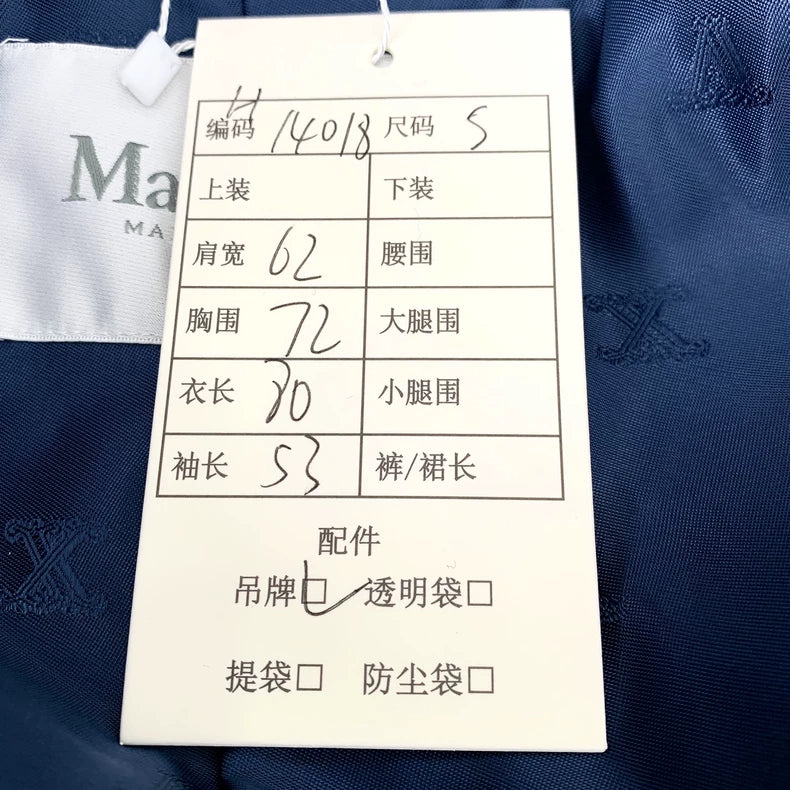 Ma
MA
编码 H 14018 尺码 S
上装 下装
肩宽 62 腰围
胸围 72 大腿围
衣长 80 小腿围
袖长 53 裤/裙长
配件
吊牌☑ 透明袋□
提袋□ 防尘袋□